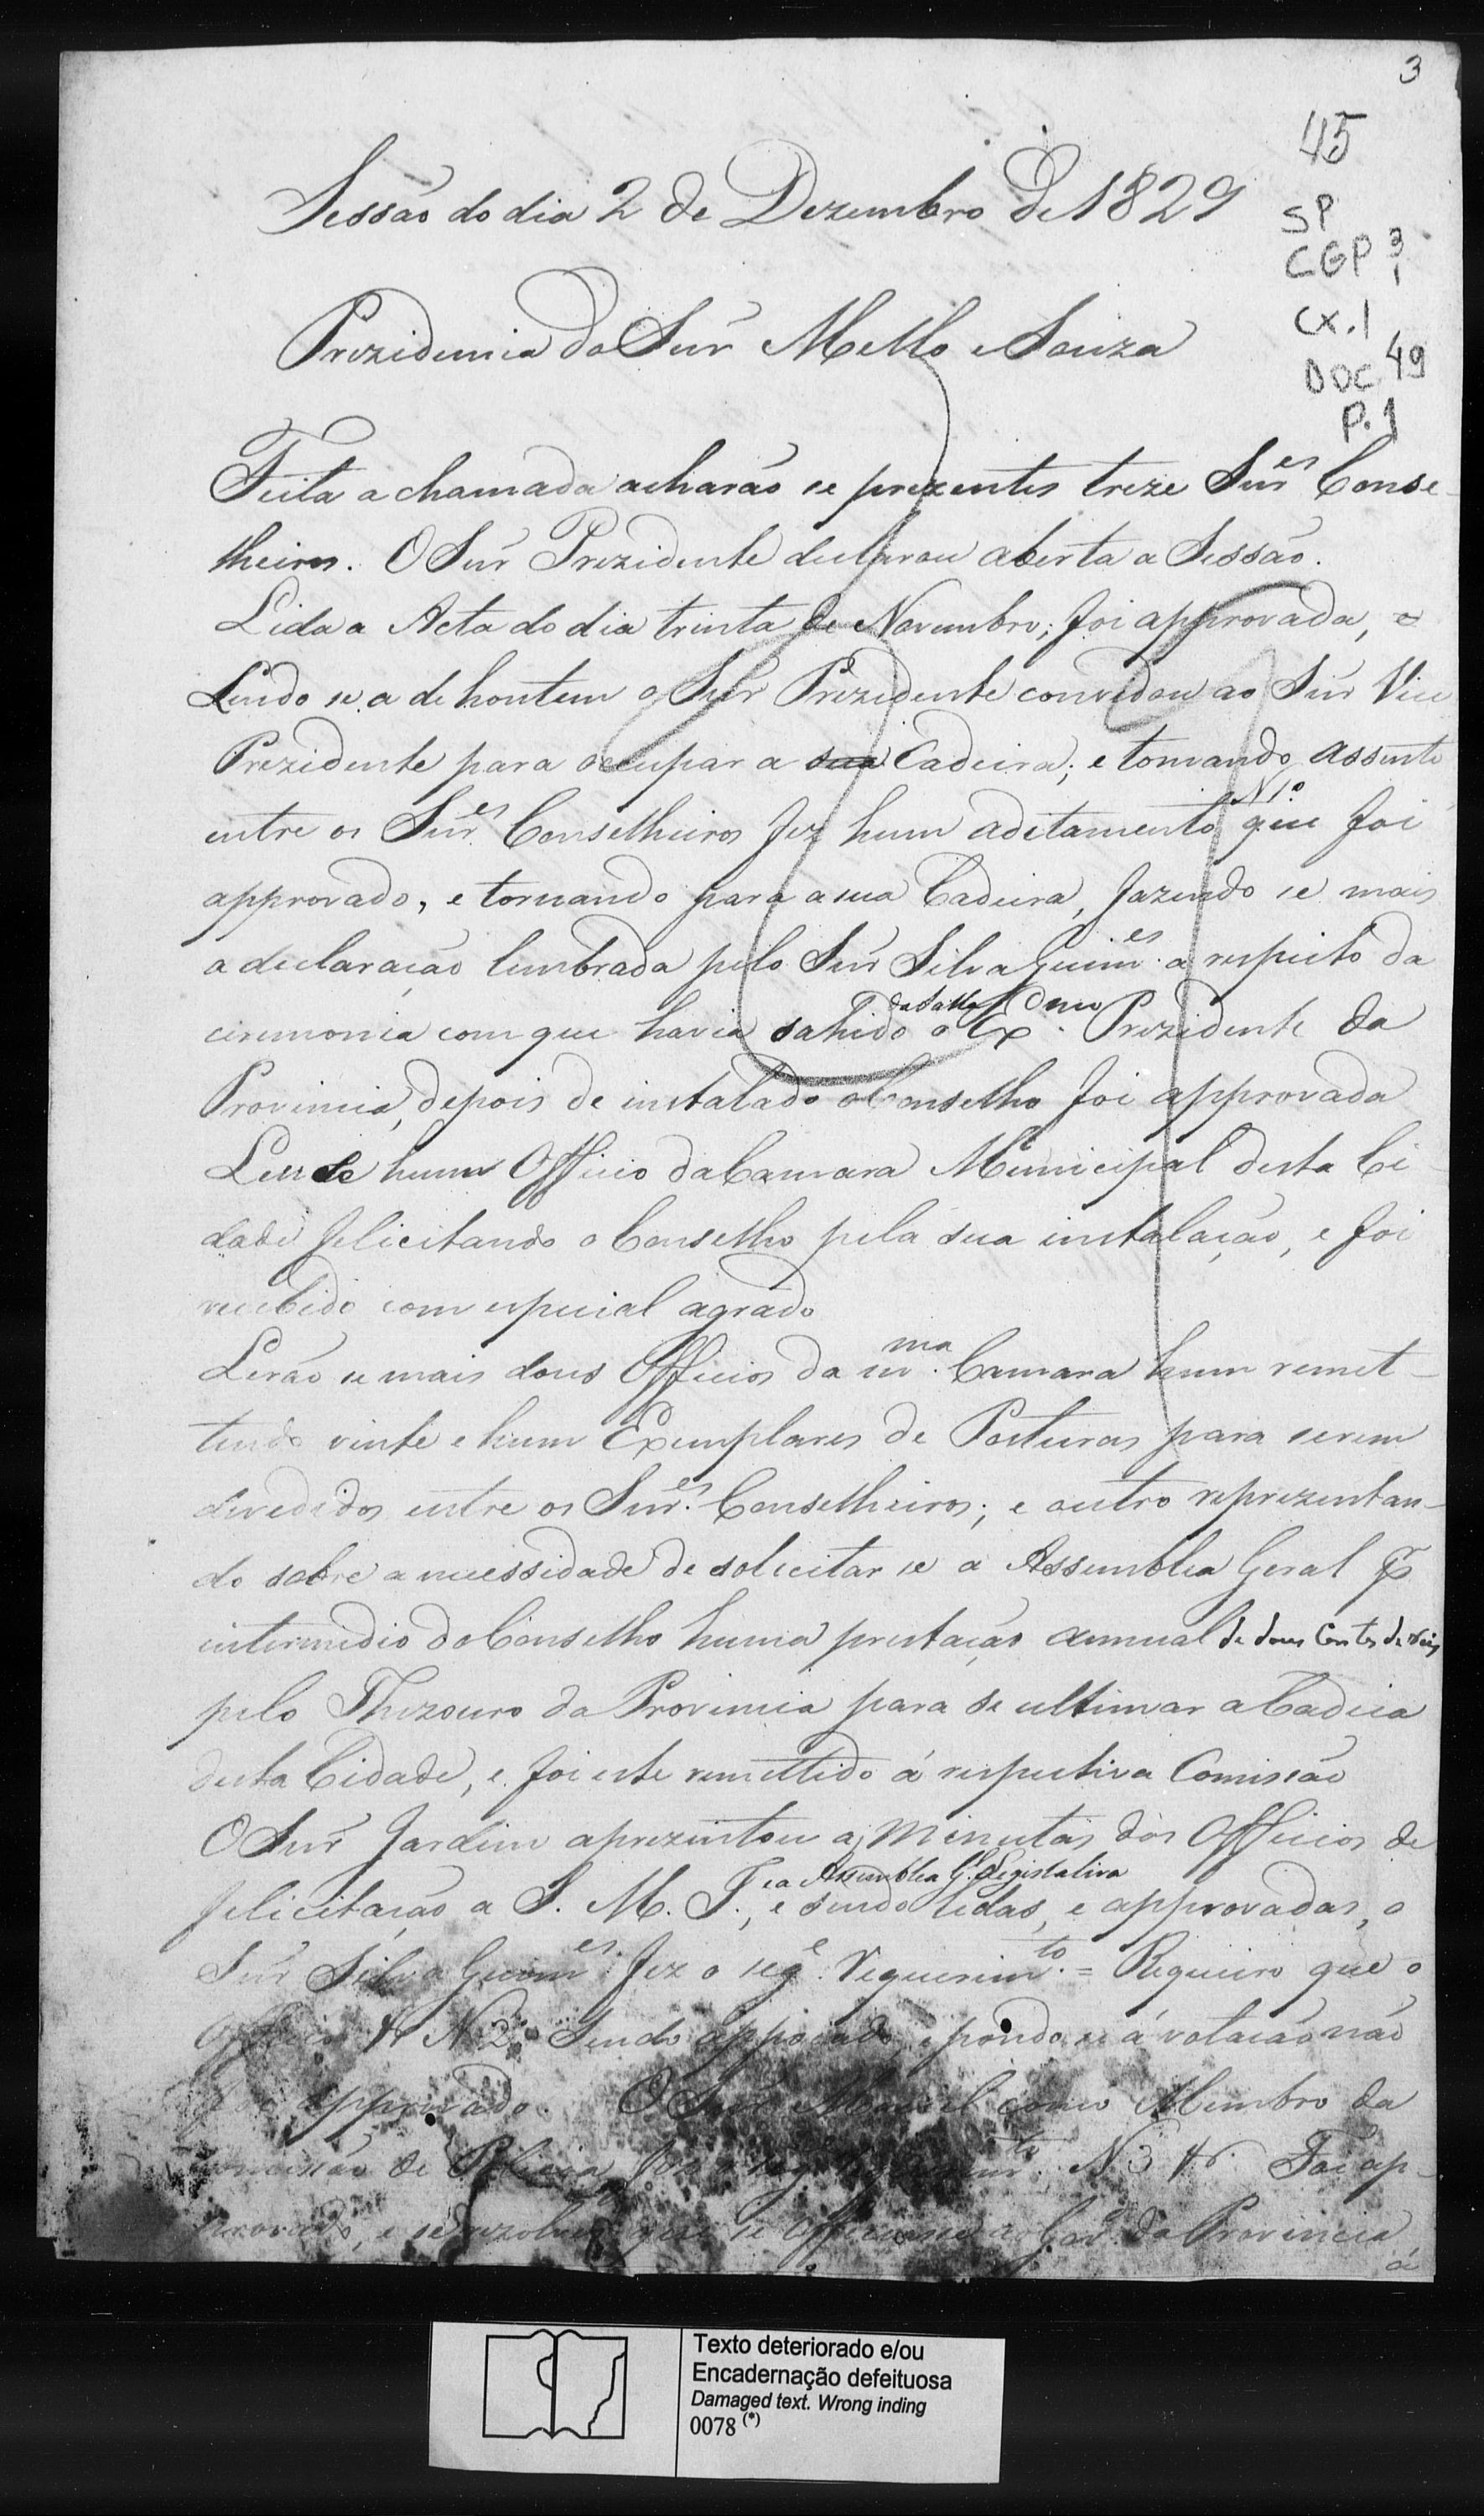 3
45
SP
CGP 3
1
cx.1
DOC 49
P.1
Sessão do dia 2 de Dezembro de 1829
Prezidencia do Snr̃ Mello e Souza
Feita a chamada acharão se prezentes treze Snr̃es Conse-
lheiros. O Snr̃ Prezidente declarou aberta a Sessão.
Lida a Acta do dia trinta de Novembro; foi approvada, e
Lendo se a de hontem o Snr̃ Prezidente convidou ao Snr̃ Vice
Prezidente para occupar a sua Cadeira; e tomando assento
entre os Snr̃es Conselheiros fez hum aditamento N 1º que foi
approvado, e tornando para a sua Cadeira, fazendo se mais
a declaração lembrada pelo Snr̃ Silva Guim.es a respeito da
ceremonia com que havia sahido da Salla o Ex.mo Prezidente da
Provincia, depois de instalado o Conselho foi approvada
Leu se hum Officio da Camara Municipal desta Ci
dade felicitando o Conselho pela sua instalação, e foi
recebido com especial agrado
Lerão se mais dous Officios da m.ma Camara hum remet-
tendo vinte e hum Exemplares de Posturas para serem
devedidos entre os Snr̃es Conselheiros; e outro reprezentan-
do sobre a necessidade de solicitar se a Assemblea Geral p.
intermedio do Conselho huma prestação annual de dous Contos de reis
pelo Thezouro da Provincia para se ultimar a Cadeia
desta Cidade, e foi este remettido á respectiva Comissão
O Snr̃ Jardim aprezentou as Minutas dos Officios de
felicitação a S. M. I., e a Assemblea G.l Legislativa e sendo lidas, e approvadas, o
Snr̃ Silva Guim.es fez o seg.e requerim.to = Requeiro que o
Officio &c N 2º Sendo appoiado, e pondo se á votação não
foi approvado. O Snr̃ Maciel como Membro da
Comissão de Policia fez o seg.e N 3 &c. Foi ap-
provado, e se rezolveu que se officiasse ao Gov.o da Provincia
á
Texto deteriorado e/ou
Encadernação defeituosa
Damaged text. Wrong inding
0078 (*)